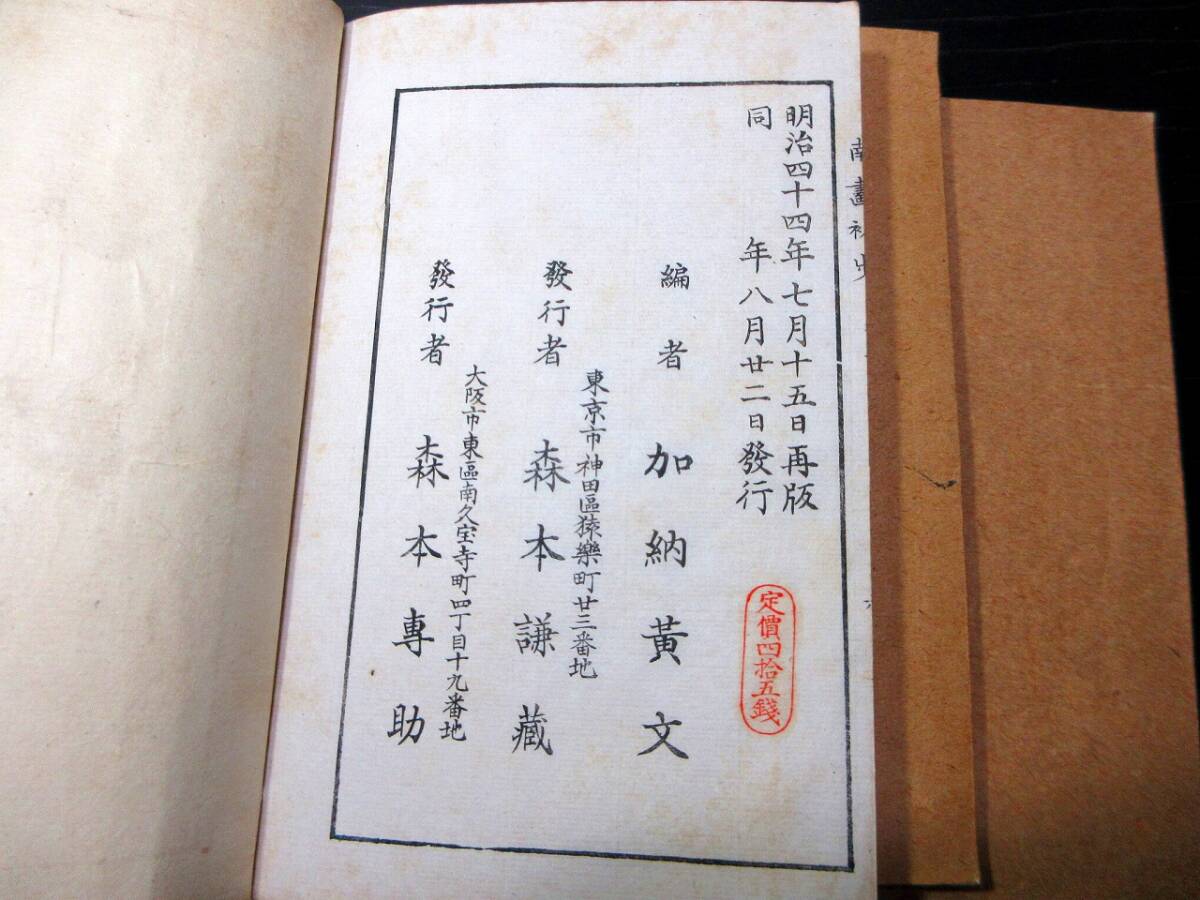 南畫初歩
明治四十四年七月十五日再版
同年八月廿二日發行
定價四拾五錢
編者 加納黃文
東京市神田區猿樂町廿三番地
發行者 森本謙藏
大阪市東區南久宝寺町四丁目十九番地
發行者 森本專助